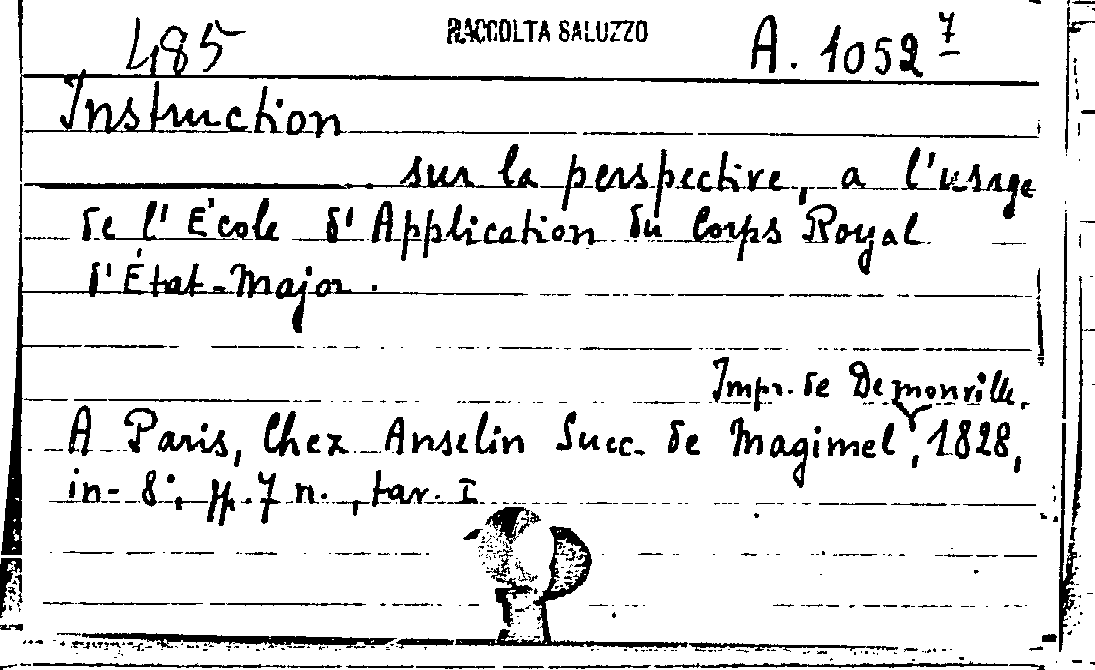 485 RACCOLTA SALUZZO A. 1052 7
Instruction
sur la perspective, a l'usage
de l'École d'Application du Corps Royal
d'État-Major.
Impr. de Demonville.
A Paris, Chez Anselin Succ. de Magimel, 1828,
in-8°, pp. 7 n., tav. I